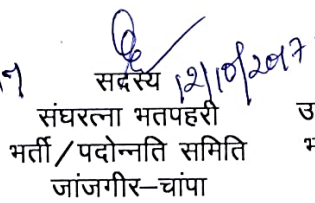 सदस्य 12/10/2017
संघरत्ना भतपहरी उ
भर्ती/पदोन्नति समिति भ
जांजगीर–चांपा